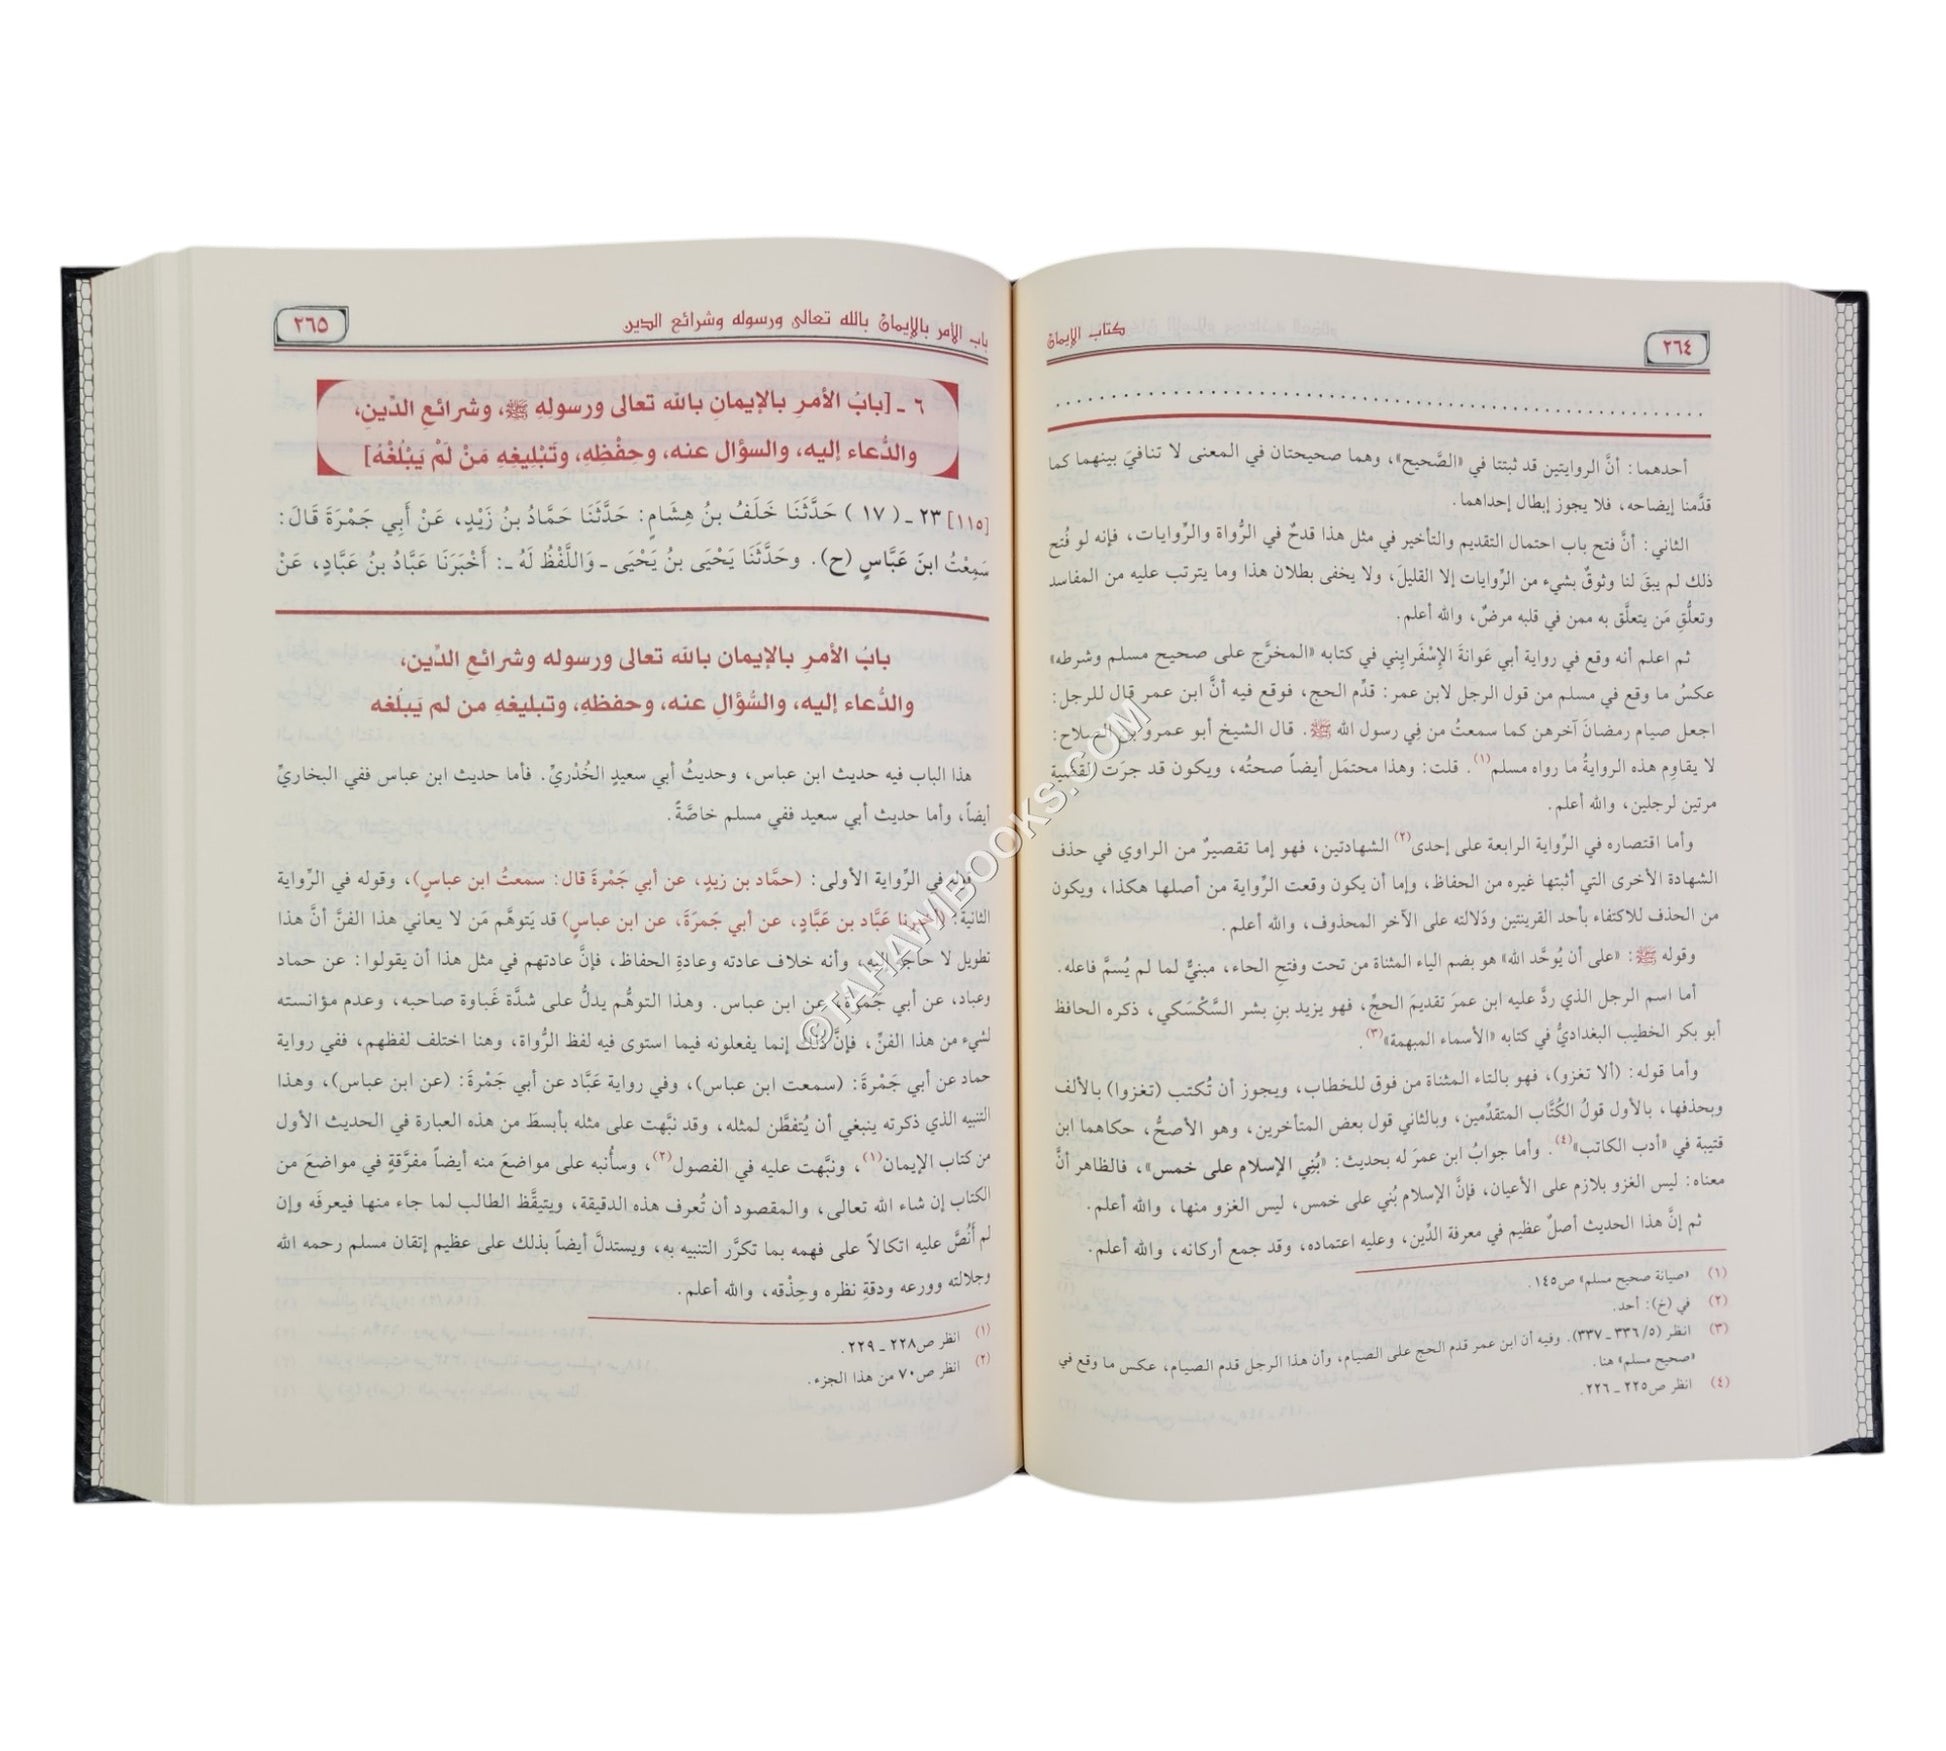 كتاب الإيمان
٢٦٤
أحدهما: أنَّ الروايتين قد ثبتتا في «الصَّحيح»، وهما صحيحتان في المعنى لا تنافيَ بينهما كما
قدَّمنا إيضاحه، فلا يجوز إبطال إحداهما.
الثاني: أنَّ فتح باب احتمال التقديم والتأخير في مثل هذا قدحٌ في الرُّواة والرِّوايات، فإنه لو فُتح
ذلك لم يبقَ لنا وثوقٌ بشيء من الرِّوايات إلا القليلَ، ولا يخفى بطلان هذا وما يترتب عليه من المفاسد
وتعلُّقِ مَن يتعلَّق به ممن في قلبه مرضٌ، والله أعلم.
ثم اعلم أنه وقع في رواية أبي عَوانةَ الإسْفَرايِني في كتابه «المخرَّج على صحيح مسلم وشرطه»
عكسُ ما وقع في مسلم من قول الرجل لابن عمر: قدِّم الحج، فوقع فيه أنَّ ابن عمر قال للرجل:
اجعل صيام رمضانَ آخرهن كما سمعتُ من فِي رسول الله ﷺ. قال الشيخ أبو عمرو بن الصلاح:
لا يقاوِم هذه الروايةُ ما رواه مسلم(١). قلت: وهذا محتمَل أيضاً صحتُه، ويكون قد جرَت القضية
مرتين لرجلين، والله أعلم.
وأما اقتصاره في الرِّواية الرابعة على إحدى(٢) الشهادتين، فهو إما تقصيرٌ من الراوي في حذف
الشهادة الأخرى التي أثبتها غيره من الحفاظ، وإما أن يكون وقعت الرِّواية من أصلها هكذا، ويكون
من الحذف للاكتفاء بأحد القرينتين ودَلالته على الآخر المحذوف، والله أعلم.
وقوله ﷺ: «على أن يُوحَّد الله» هو بضم الياء المثناة من تحت وفتحِ الحاء، مبنيٌّ لما لم يُسمَّ فاعله.
أما اسم الرجل الذي ردَّ عليه ابن عمرَ تقديمَ الحجِّ، فهو يزيد بنِ بشر السَّكْسَكي، ذكره الحافظ
أبو بكر الخطيب البغداديُّ في كتابه «الأسماء المبهمة»(٣).
وأما قوله: (ألا تغزو)، فهو بالتاء المثناة من فوق للخطاب، ويجوز أن تُكتب (تغزوا) بالألف
وبحذفها، بالأول قولُ الكُتَّاب المتقدِّمين، وبالثاني قول بعض المتأخرين، وهو الأصحُّ، حكاهما ابن
قتيبة في «أدب الكاتب»(٤). وأما جوابُ ابن عمرَ له بحديث: «بُنِي الإسلام على خمس»، فالظاهر أنَّ
معناه: ليس الغزو بلازم على الأعيان، فإنَّ الإسلام بُني على خمس، ليس الغزو منها، والله أعلم.
ثم إنَّ هذا الحديث أصلٌ عظيم في معرفة الدِّين، وعليه اعتماده، وقد جمع أركانه، والله أعلم.
(١) «صيانة صحيح مسلم» ص١٤٥.
(٢) في (خ): أحد.
(٣) انظر (٥/ ٣٣٦ ـ ٣٣٧). وفيه أن ابن عمر قدم الحج على الصيام، وأن هذا الرجل قدم الصيام، عكس ما وقع في
«صحيح مسلم» هنا.
(٤) انظر ص٢٢٥ ـ ٢٢٦.
باب الأمر بالإيمان بالله تعالى ورسوله وشرائع الدين
٢٦٥
٦ ـ [بابُ الأمرِ بالإيمانِ بالله تعالى ورسولِهِ ﷺ، وشرائعِ الدِّينِ،
والدُّعاء إليه، والسؤال عنه، وحِفْظِهِ، وتَبْلِيغِهِ مَنْ لَمْ يَبْلُغْهُ]
[١١٥] ٢٣ ـ ( ١٧ ) حَدَّثَنَا خَلَفُ بنُ هِشَامٍ: حَدَّثَنَا حَمَّادُ بنُ زَيْدٍ، عَنْ أَبِي جَمْرَةَ قَالَ:
سَمِعْتُ ابنَ عَبَّاسٍ (ح). وحَدَّثَنَا يَحْيَى بنُ يَحْيَى ـ وَاللَّفْظُ لَهُ ـ: أَخْبَرَنَا عَبَّادُ بنُ عَبَّادٍ، عَنْ
بابُ الأمرِ بالإيمان بالله تعالى ورسوله وشرائعِ الدِّين،
والدُّعاء إليه، والسُّؤالِ عنه، وحفظهِ، وتبليغهِ من لم يَبلُغه
هذا الباب فيه حديث ابن عباس، وحديثُ أبي سعيدٍ الخُدْريِّ. فأما حديث ابن عباس ففي البخاريِّ
أيضاً، وأما حديث أبي سعيد ففي مسلم خاصَّةً.
قوله في الرِّواية الأولى: (حمَّاد بن زيدٍ، عن أبي جَمْرةَ قال: سمعتُ ابن عباسٍ)، وقوله في الرِّواية
الثانية: (أخبرنا عبَّاد بن عبَّادٍ، عن أبي جَمرَةَ، عن ابن عباسٍ) قد يَتوهَّم مَن لا يعاني هذا الفنَّ أنَّ هذا
تطويل لا حاجة إليه، وأنه خلاف عادته وعادةِ الحفاظ، فإنَّ عادتهم في مثل هذا أن يقولوا: عن حماد
وعباد، عن أبي جَمْرةَ، عن ابن عباس. وهذا التوهُّم يدلُّ على شدَّة غَباوة صاحبه، وعدم مؤانسته
لشيء من هذا الفنِّ، فإنَّ ذلك إنما يفعلونه فيما استوى فيه لفظ الرُّواة، وهنا اختلف لفظهم، ففي رواية
حماد عن أبي جَمْرةَ: (سمعت ابن عباس)، وفي رواية عَبَّاد عن أبي جَمْرةَ: (عن ابن عباس)، وهذا
التنبيه الذي ذكرته ينبغي أن يُتفطَّن لمثله، وقد نبَّهت على مثله بأبسطَ من هذه العبارة في الحديث الأول
من كتاب الإيمان(١)، ونبَّهت عليه في الفصول(٢)، وسأُنبه على مواضعَ منه أيضاً مفرَّقةٍ في مواضعَ من
الكتاب إن شاء الله تعالى، والمقصود أن تُعرف هذه الدقيقة، ويتيقَّظ الطالب لما جاء منها فيعرفَه وإن
لم أنُصَّ عليه اتكالاً على فهمه بما تكرَّر التنبيه به، ويستدلَّ أيضاً بذلك على عظيم إتقان مسلم رحمه الله
وجلالته وورعه ودقةِ نظره وحِذْقه، والله أعلم.
(١) انظر ص٢٢٨ ـ ٢٢٩.
(٢) انظر ص٧٠ من هذا الجزء.
©TAHAWIBOOKS.COM